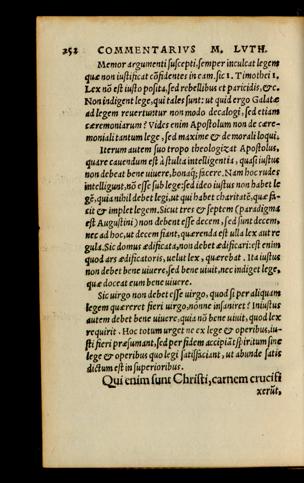 252 COMMENTARIVS M. LVTH.
Memor argumenti suscepti, semper inculcat legem
quæ non iustificat cõfidentes in eam. sic 1. Timothei 1,
Lex nõ est iusto posita, sed rebellibus et paricidis, &c.
Non indigent lege, qui tales sunt: ut quid ergo Galatæ
ad legem reuertuntur non modo decalogi, sed etiam
cæremoniarum? Vides enim Apostolum non de cære-
moniali tantum lege, sed maxime & de morali loqui,
Iterum autem suo tropo theologizat Apostolus,
quare cauendum est à stulta intelligentia, quasi iustus
non debeat bene uiuere, bonaq; facere. Nam hoc rudes
intelligunt, nõ esse sub lege: sed ideo iustus non habet le
gẽ, quia nihil debet legi, ut qui habet charitatẽ, quæ fa-
cit & implet legem. Sicut tres & septem (paradigma
est Augustini) non debent esse decem, sed sunt decem,
nec ad hoc, ut decem fiant, quærenda est ulla lex aut re
gula. Sic domus ædificata, non debet ædificari: est enim
quod ars ædificatoris, uelut lex, quærebat. Ita iustus
non debet bene uiuere, sed bene uiuit, nec indiget lege,
quæ doceat eum bene uiuere.
Sic uirgo non debet esse uirgo, quod si per aliquam
legem quæreret fieri uirgo, nonne insaniret? Iniustus
autem debet bene uiuere, quia nõ bene uiuit, quod lex
requirit. Hoc totum urget ne ex lege & operibus, iu-
sti fieri præsumant, sed per fidem accipiãt spiritum sine
lege & operibus quo legi satisfaciant, ut abunde satis
dictum est in superioribus.
Qui enim sunt Christi, carnem crucifi
xerũt,